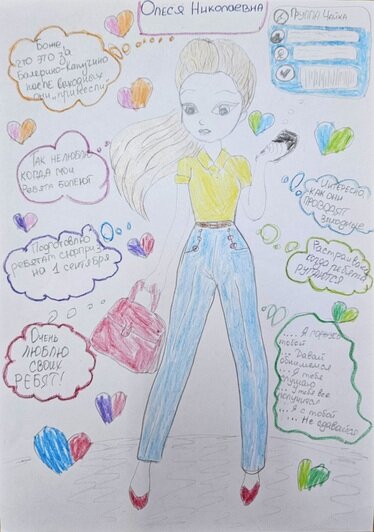 Олеся Николаевна
Группа Чайка
Боже,
что это за
Балерино-Капучино
после выходных
они принесли
Так не люблю
когда мои
ребята болеют
Интересно
как они
проводят
выходные
Подготовлю
ребятам сюрприз
на 1 сентября
Расстраиваюсь
когда ребята
ругаются
Очень
люблю
своих
ребят!
... Я горжусь
тобой
... Давай
обнимемся
... Я тебя
слушаю
... У тебя все
получится
... Я с тобой
... Не сдавайся